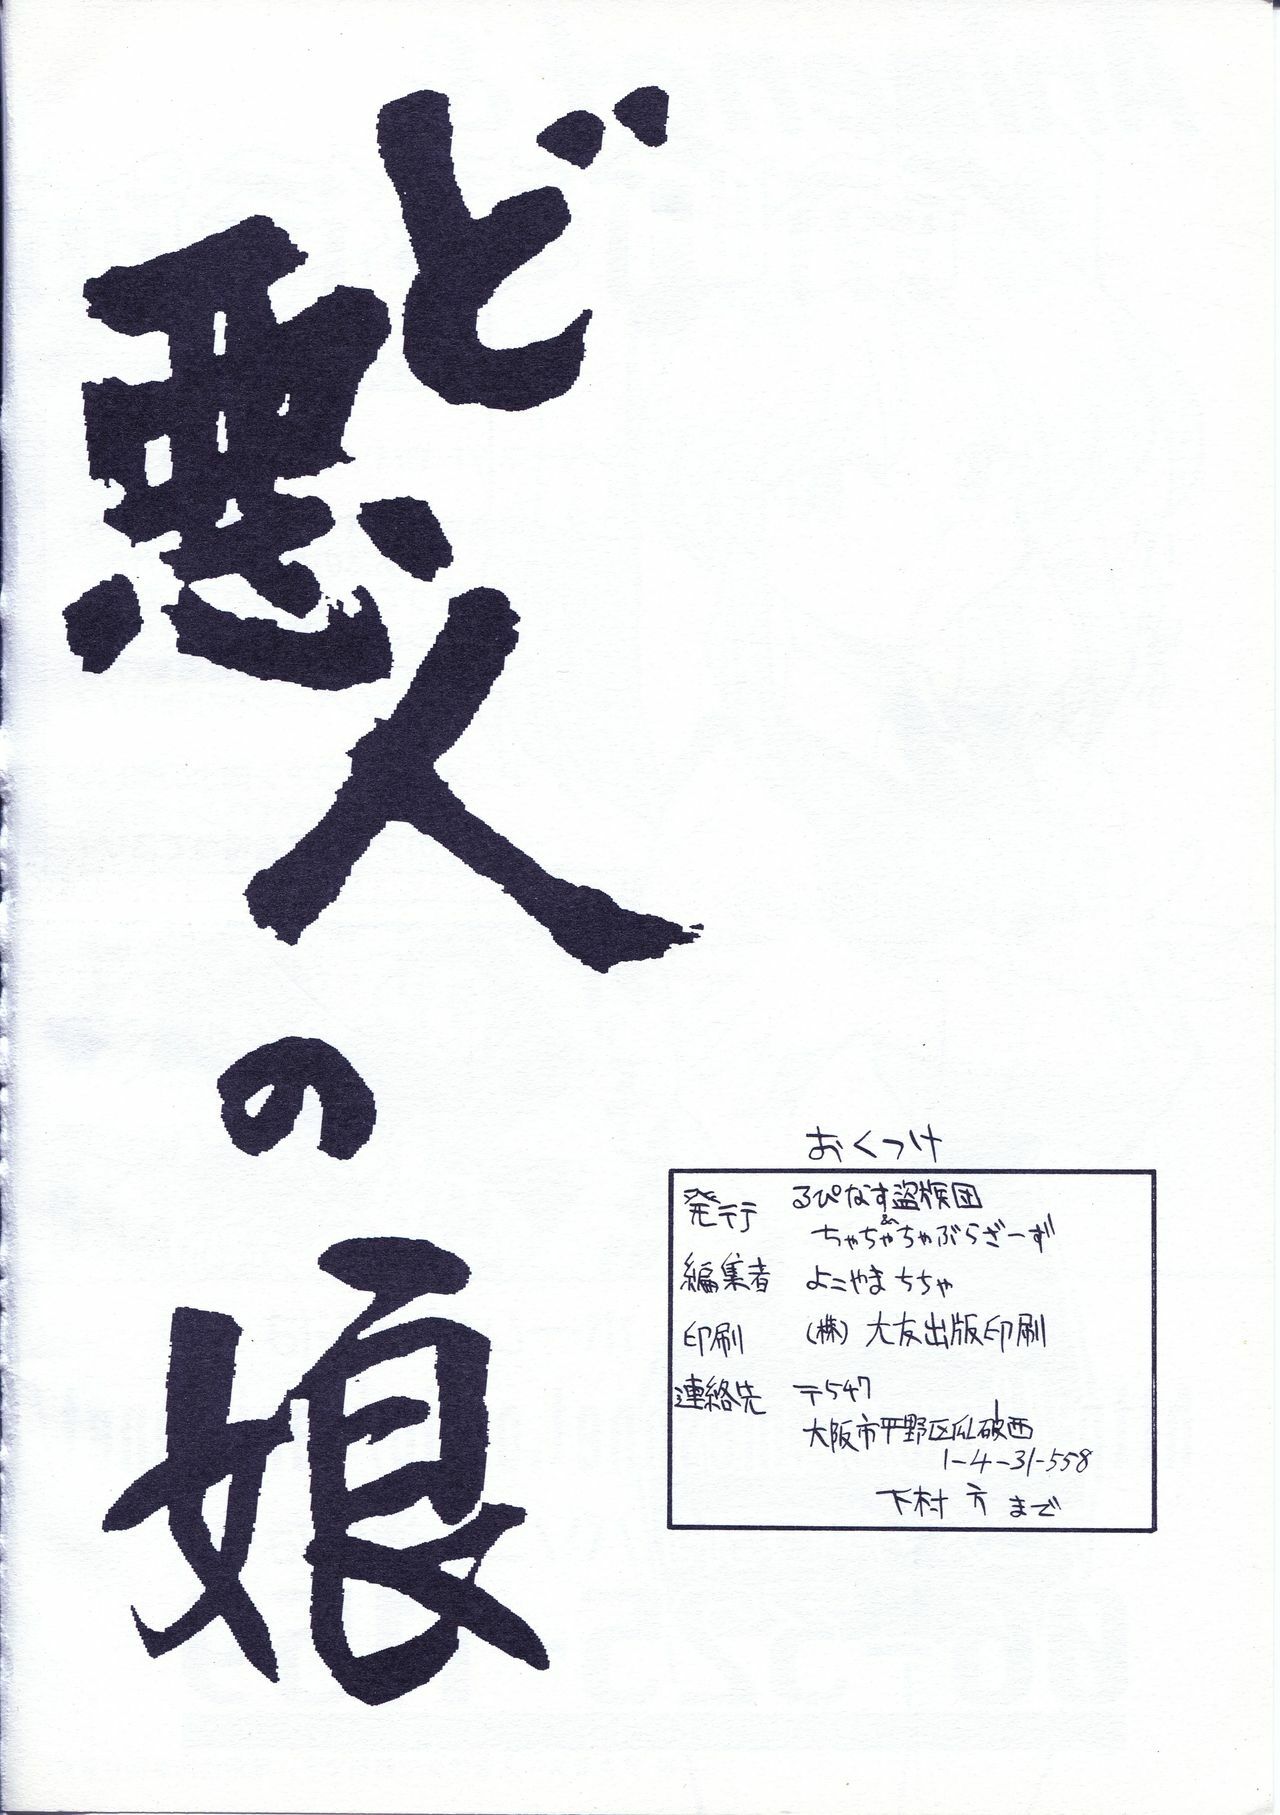 ど悪人の娘
おくつけ
発行 るぴなす盗賊団
&
ちゃちゃちゃぶらざーず
編集者 よこやまちちゃ
印刷 (株)大友出版印刷
連絡先 〒547
大阪市平野区瓜破西
1-4-31-558
下村方まで